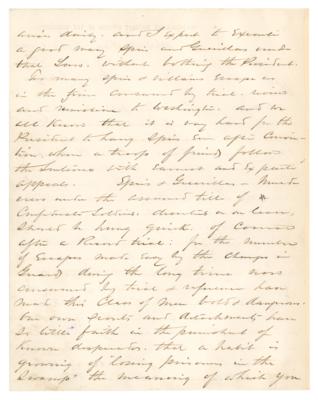 and I expect to Execute
a good many Spies and Guerillas under
that Law. without bothering the President.
Too many spies & villains Escape us
in the time consumed by trial. review
and remission to Washington. and we
all Know that it is very hard for the
President to hang Spies Even after Convic-
tion, when a troop of friends follow
the Sentence with Earnest and Ex parte
appeals. Spies & Guerillas - Murd-
erers under the assumed title of
Confederate Soldiers, deserters on leave,
should be hung quick. of Course
after a trial: for the number
of Escapes made Easy by the changes in
Guard, during the long time now
consumed by trial & reference have
made this Class of Men bold & dangerous.
Our own Scouts and detachments have
So little faith in the punishment of
Known desperados, that a habit is
growing of "losing prisoners in the
Swamp" the meaning of which you